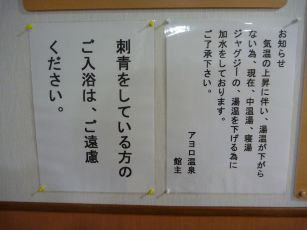 お知らせ
気温の上昇に伴い、湯温が下がら
ない為、現在、中温湯、寝湯
ジャグジーの、湯温を下げる為に
加水をしております。
ご了承下さい。
アヨロ温泉
館主
刺青をしている方の
ご入浴は、ご遠慮
ください。